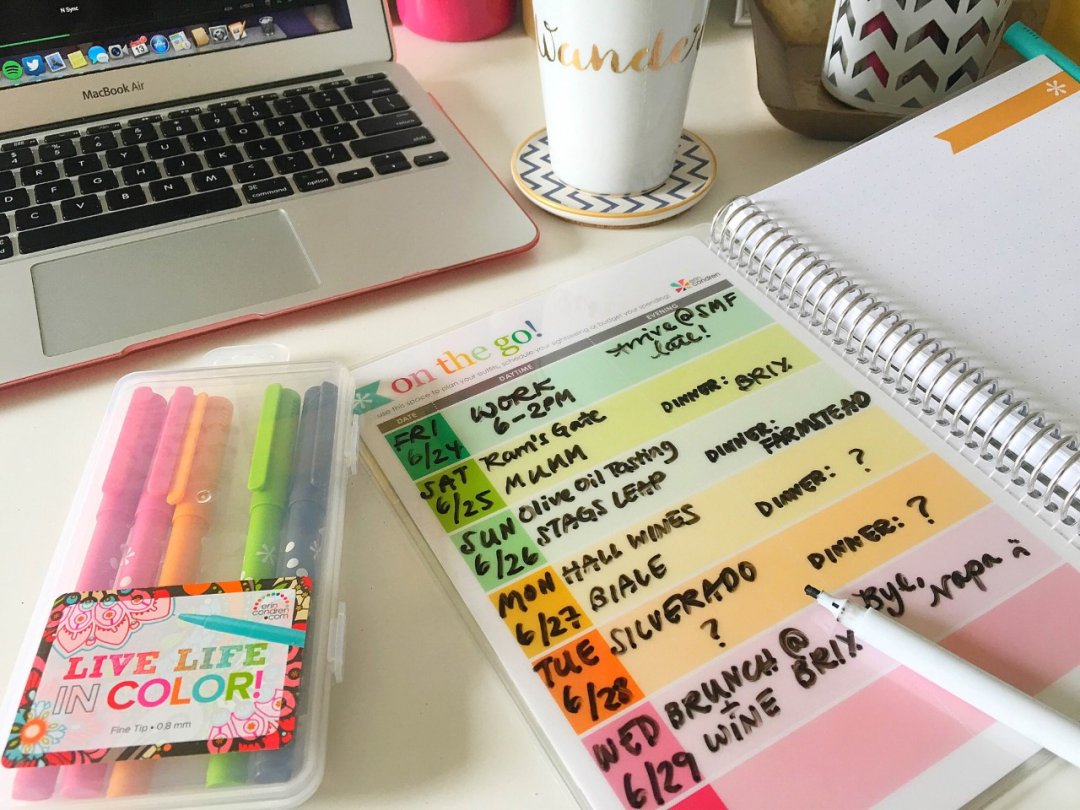 N Sync
MacBook Air
return
shift
command
option
Wander
erin
condren
on the go!
use this space to plan your outfits, schedule your sightseeing or budget your spending!
DATE
DAYTIME
EVENING
FRI
6/24
WORK
6-2PM
Arrive @ SMF
late!
SAT
6/25
Ram's Gate
MUMM
DINNER: BRIX
SUN
6/26
Olive Oil Tasting
STAGS LEAP
DINNER:
FARMSTEAD
MON
6/27
HALL WINES
BIALE
DINNER: ?
TUE
6/28
SILVERADO
?
DINNER: ?
WED
6/29
BRUNCH @
BRIX
+
WINE
Bye,
Napa
erin
condren
.com
LIVE LIFE
IN COLOR!
Fine Tip • 0.8 mm